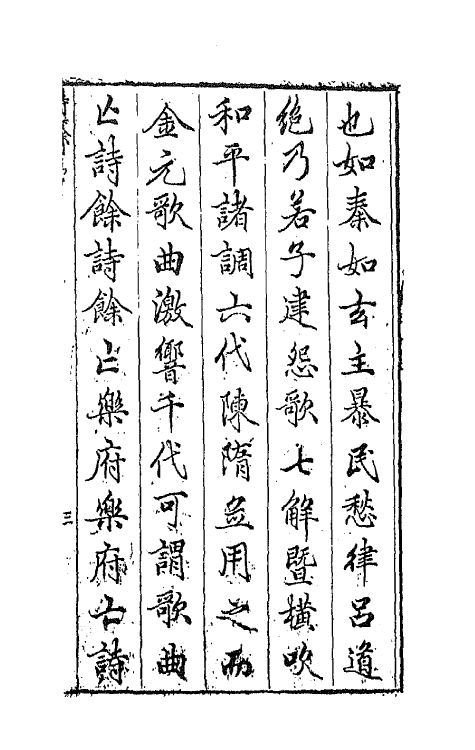 也如秦如玄主暴民愁律呂道
絶乃若子建怨歌七解暨橫吹
和平諸調六代陳隋並用之而
金元歌曲激響千代可謂歌曲
亾詩餘詩餘亾樂府樂府亾詩
三